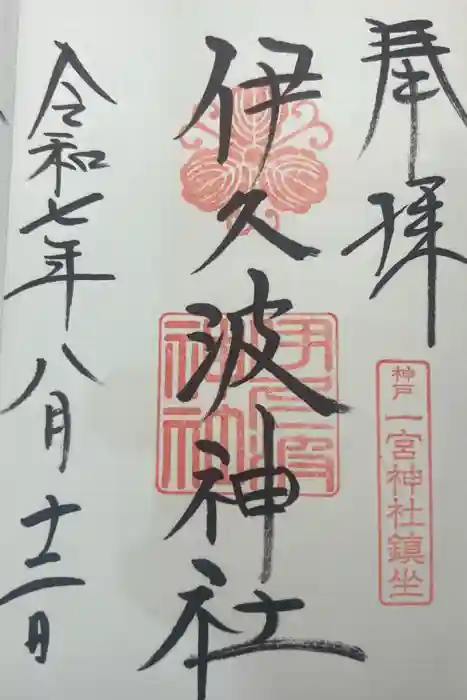 奉拝
神戸一宮神社鎮坐
伊久波神社
伊久波神社
令和七年八月十二日